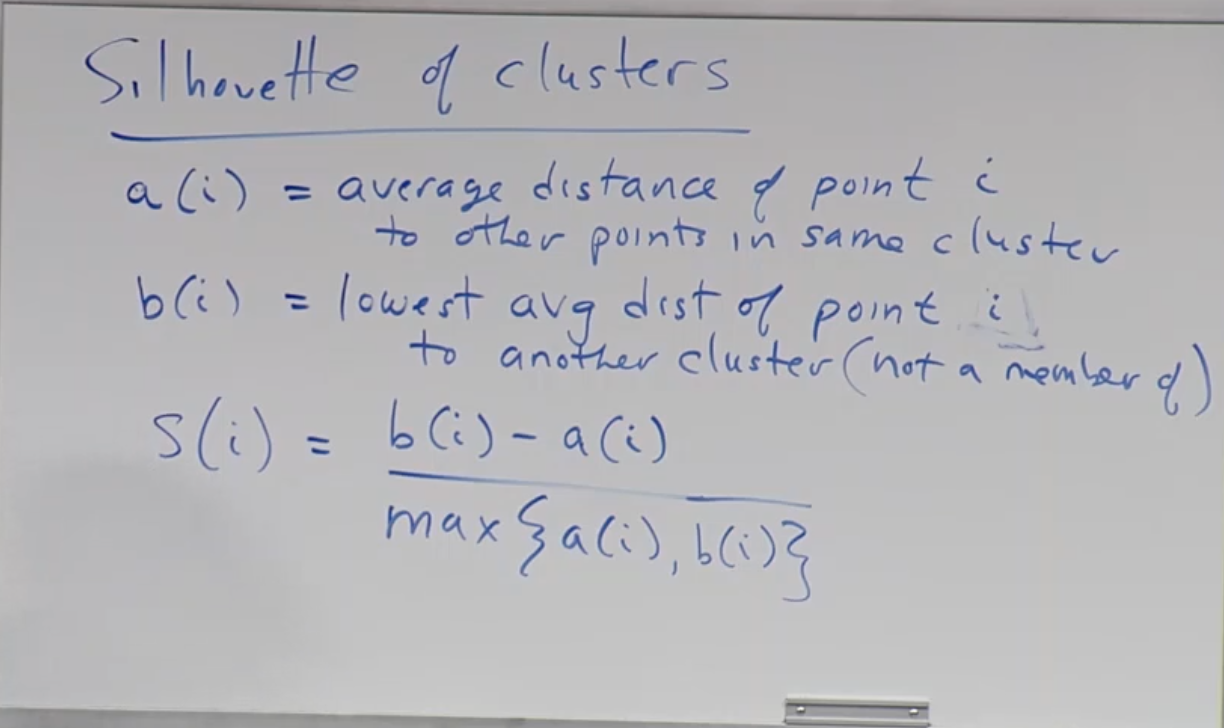 Silhouette of clusters
a(i) = average distance of point i
to other points in same cluster
b(i) = lowest avg dist of point i
to another cluster (not a member of)
S(i) = b(i) - a(i)
max{a(i), b(i)}